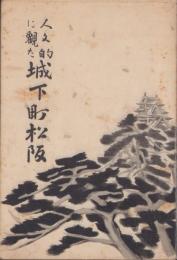 人文的
に觀た
城下町松阪